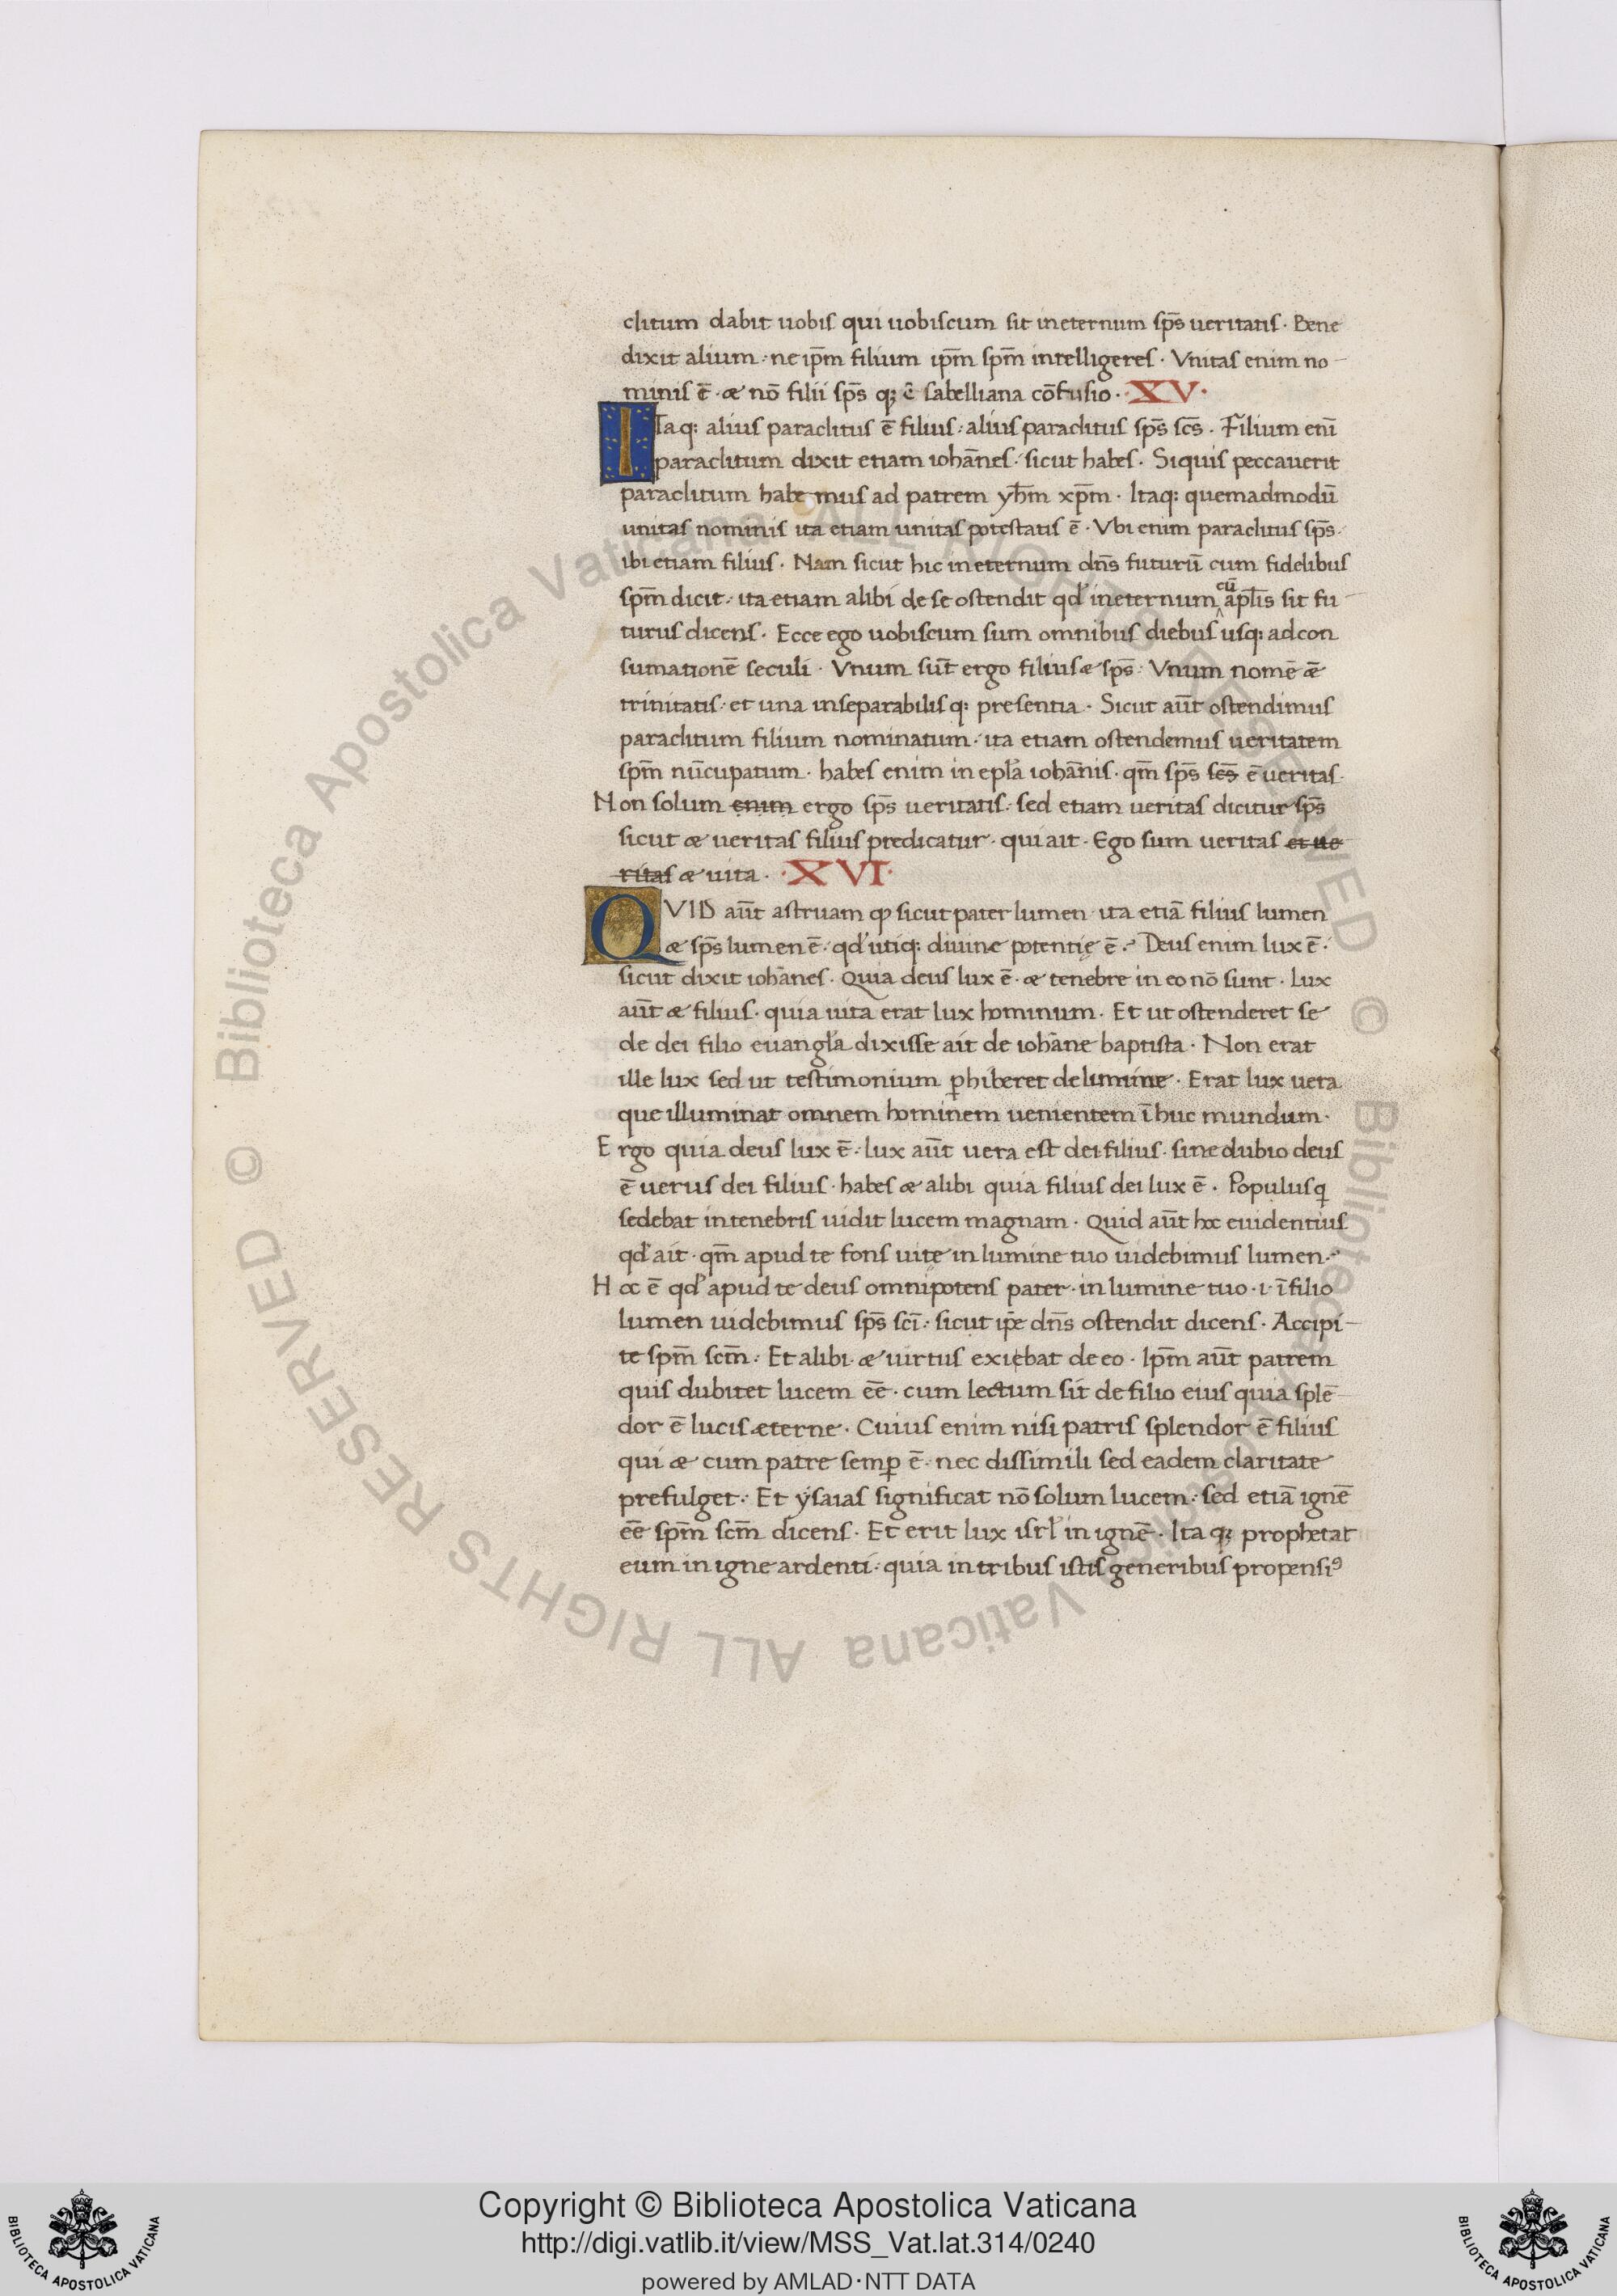 clitum dabit uobis qui uobiscum sit in eternum sp̄s ueritatis · Bene
dixit alium · ne ip̄m filium ip̄m sp̄m intelligeres · Vnitas enim no-
minis ē · æ nō filii sp̄s q; ē sabelliana cōfusio · XV ·
ITaq: alius paraclitus ē filius · alius paraclitus sp̄s sc̄s · Filium enī
paraclitum dixit etiam iohānes · sicut habes · Siquis peccauerit
paraclitum habemus ad patrem yh̄m xp̄m · Itaq: quemadmodū
unitas nominis ita etiam unitas potestatis ē · Vbi enim paraclitus sp̄s ·
ibi etiam filius · Nam sicut hic in eternum dn̄s futurū cum fidelibus
sp̄m dicit · ita etiam alibi de se ostendit qd' in eternum cū apl̄is sit fu-
turus dicens · Ecce ego uobiscum sum omnibus diebus usq: ad con
sumationē seculi · Vnum sūt ergo filius æ sp̄s · Vnum nomē ǣ
trinitatis · et una inseparabilis q: presentia · Sicut aūt ostendimus
paraclitum filium nominatum · ita etiam ostendemus ueritatem
sp̄m nūcupatum · habes enim in epl'a iohānis · qm̄ sp̄s sc̄s ē ueritas ·
Non solum enim ergo sp̄s ueritatis · sed etiam ueritas dicitur sp̄s
sicut æ ueritas filius predicatur · qui ait · Ego sum ueritas et ue
ritas æ uita · XVI ·
QVID aūt astruam ꝙ sicut pater lumen ita etiā filius lumen
æ sp̄s lumen ē · qd' utiq: diuine potentię ē · Deus enim lux ē ·
sicut dixit iohānes · Quia deus lux ē · æ tenebre in eo nō sunt · Lux
aūt æ filius · quia uita erat lux hominum · Et ut ostenderet se
de dei filio euangl'a dixisse ait de iohāne baptista · Non erat
ille lux sed ut testimonium ꝑhiberet de lumine · Erat lux uera
que illuminat omnem hominem uenientem ī huc mundum ·
Ergo quia deus lux ē · lux aūt uera est dei filius · sine dubio deus
ē uerus dei filius · habes æ alibi quia filius dei lux ē · Populus q
sedebat in tenebris uidit lucem magnam · Quid aūt hoc euidentius
qd' ait · qm̄ apud te fons uite in lumine tuo uidebimus lumen ·
Hoc ē qd' apud te deus omnipotens pater · in lumine tuo · i · ī filio
lumen uidebimus sp̄s sc̄i · sicut ip̄e dn̄s ostendit dicens · Accipi-
te sp̄m sc̄m · Et alibi · æ uirtus exiebat de eo · Ip̄m aūt patrem
quis dubitet lucem ēē · cum lectum sit de filio eius quia splē-
dor ē lucis æterne · Cuius enim nisi patris splendor ē filius
qui æ cum patre semꝑ ē · nec dissimili sed eadem claritate
prefulget · Et ysaias significat nō solum lucem · sed etiā ignē
ēē sp̄m sc̄m dicens · Et erit lux isrl' in ignē · Ita q; prophetat
eum in igne ardenti · quia in tribus istis generibus propensiꝰ
Copyright © Biblioteca Apostolica Vaticana
http://digi.vatlib.it/view/MSS_Vat.lat.314/0240
powered by AMLAD·NTT DATA
BIBLIOTECA APOSTOLICA VATICANA
BIBLIOTECA APOSTOLICA VATICANA
© Biblioteca Apostolica Vaticana ALL RIGHTS RESERVED
© Biblioteca Apostolica Vaticana ALL RIGHTS RESERVED